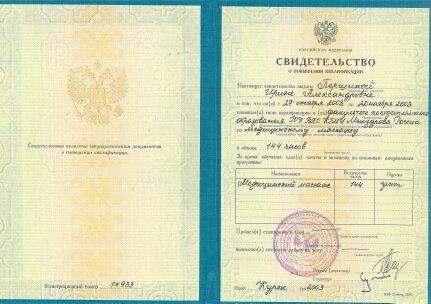 Свидетельство является государственным документом
о повышении квалификации
Регистрационный номер 14933
РОССИЙСКАЯ ФЕДЕРАЦИЯ
СВИДЕТЕЛЬСТВО
О ПОВЫШЕНИИ КВАЛИФИКАЦИИ
Настоящее свидетельство выдано Першиной
Ирине Александровне
в том, что он(а) с 27 октября 2003 по 20 ноября 2003
повысил(а) свою квалификацию в (на) факультете последипломного
образования ГОУ ВПО КГМУ Минздрава России
по медицинскому массажу
в объеме 144 часов
За время обучения сдал(а) зачеты и экзамены по основным дисциплинам
программы:
Наименование Количество часов Оценка
Медицинский массаж 144 зачет
Прошел(а) стажировку в (на)
выполнил(а) итоговую работу на тему
Город Курск 2003